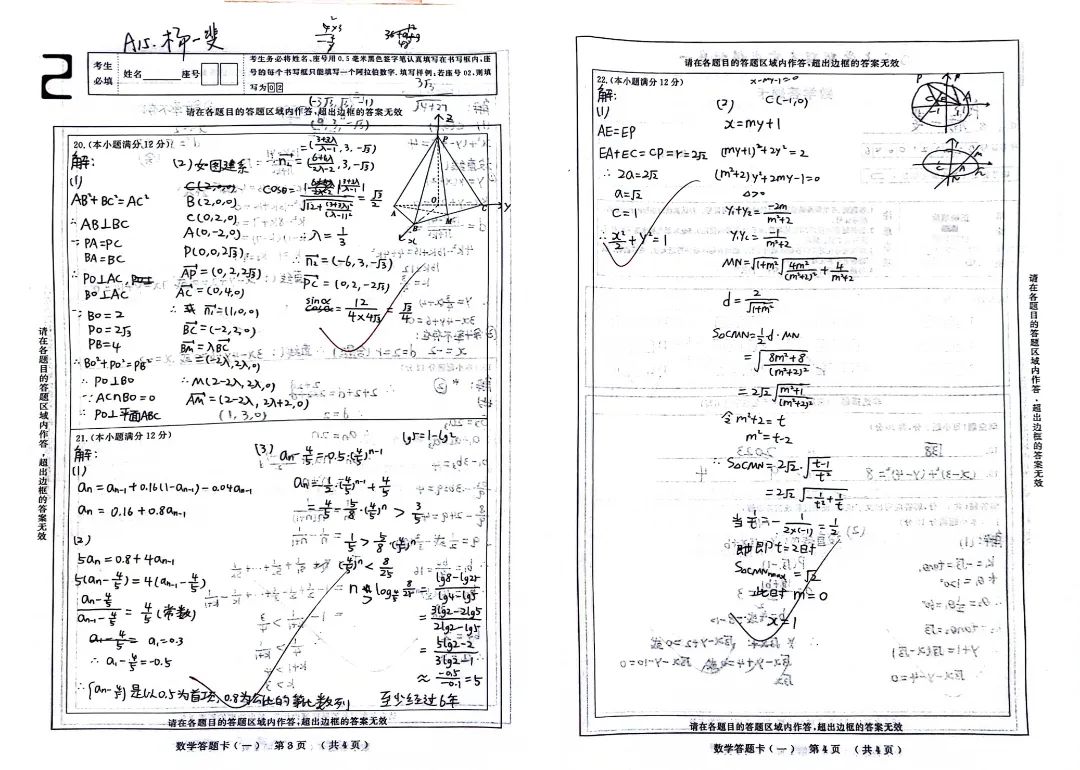 A15.柳一斐
2
考生必填
姓名
座号
考生务必将姓名、座号用0.5毫米黑色签字笔认真填写在书写框内,座
号的每个书写框只能填写一个阿拉伯数字.填写样例,若座号02,则填
写为02
请在各题目的答题区域内作答,超出边框的答案无效
20.(本小题满分12分)
解:
(1)
AB²+BC²=AC²
∴AB⊥BC
∵PA=PC
BA=BC
∴PO⊥AC,
BO⊥AC
∵BO=2
PO=2√3
PB=4
∴BO²+PO²=PB²
∴PO⊥BO
∵AC∩BO=O
∴PO⊥平面ABC
(2)如图建系
B(2,0,0)
C(0,2,0)
A(0,-2,0)
P(0,0,2√3)
AP=(0,2,2√3)
AC=(0,4,0)
n₁=(1,0,0)
BC=(-2,2,0)
BM=λBC
=(-2λ,2λ,0)
∴M(2-2λ,2λ,0)
AM=(2-2λ,2λ+2,0)
(1,3,0)
∴λ=1/3
∴n₁=(-6,3,-√3)
PC=(0,2,-2√3)
sinα=12/(4×4√3)=√3/4
21.(本小题满分12分)
解:
(1)
aₙ=aₙ₋₁+0.16(1-aₙ₋₁)-0.04aₙ₋₁
aₙ=0.16+0.8aₙ₋₁
(2)
5aₙ=0.8+4aₙ₋₁
5(aₙ-4/5)=4(aₙ₋₁-4/5)
(aₙ-4/5)/(aₙ₋₁-4/5)=4/5(常数)
a₁=0.3
∴a₁-4/5=-0.5
∴{aₙ-4/5}是以0.5为首项,0.8为公比的等比数列
lg5=1-lg2
(3)aₙ-4/5=-0.5·(4/5)ⁿ⁻¹
aₙ=-1/2·(4/5)ⁿ⁻¹+4/5
=4/5-5/8·(4/5)ⁿ>3/5
1/5>5/8·(4/5)ⁿ
(4/5)ⁿ<8/25
n>log₄/₅ 8/25=(lg8-lg25)/(lg4-lg5)
=(3lg2-2lg5)/(2lg2-lg5)
=(5lg2-2)/(3lg2-1)
≈-0.5/-0.1=5
至少经过6年
请在各题目的答题区域内作答,超出边框的答案无效
数学答题卡(一) 第3页 (共4页)
请在各题目的答题区域内作答,超出边框的答案无效
请在各题目的答题区域内作答,超出边框的答案无效
22.(本小题满分12分)
解:
(1)
AE=EP
EA+EC=CP=r=2√2
∴2a=2√2
a=√2
c=1
∴x²/2+y²=1
x-my-1=0
(2) C(-1,0)
x=my+1
(my+1)²+2y²=2
(m²+2)y²+2my-1=0
△>0
y₁+y₂=-2m/(m²+2)
y₁y₂=-1/(m²+2)
MN=√(1+m²)√(4m²/(m²+2)²+4/(m²+2))
d=2/√(1+m²)
S△CMN=1/2d·MN
=√((8m²+8)/(m²+2)²)
=2√2√((m²+1)/(m²+2)²)
令m²+2=t
m²=t-2
∴S△CMN=2√2·√((t-1)/t²)
=2√2√(-1/t²+1/t)
当1/t=-1/(2×(-1))=1/2
即即t=2时
S△CMNmax=√2
此时m=0
x=1
请在各题目的答题区域内作答,超出边框的答案无效
数学答题卡(一) 第4页 (共4页)
请在各题目的答题区域内作答,超出边框的答案无效